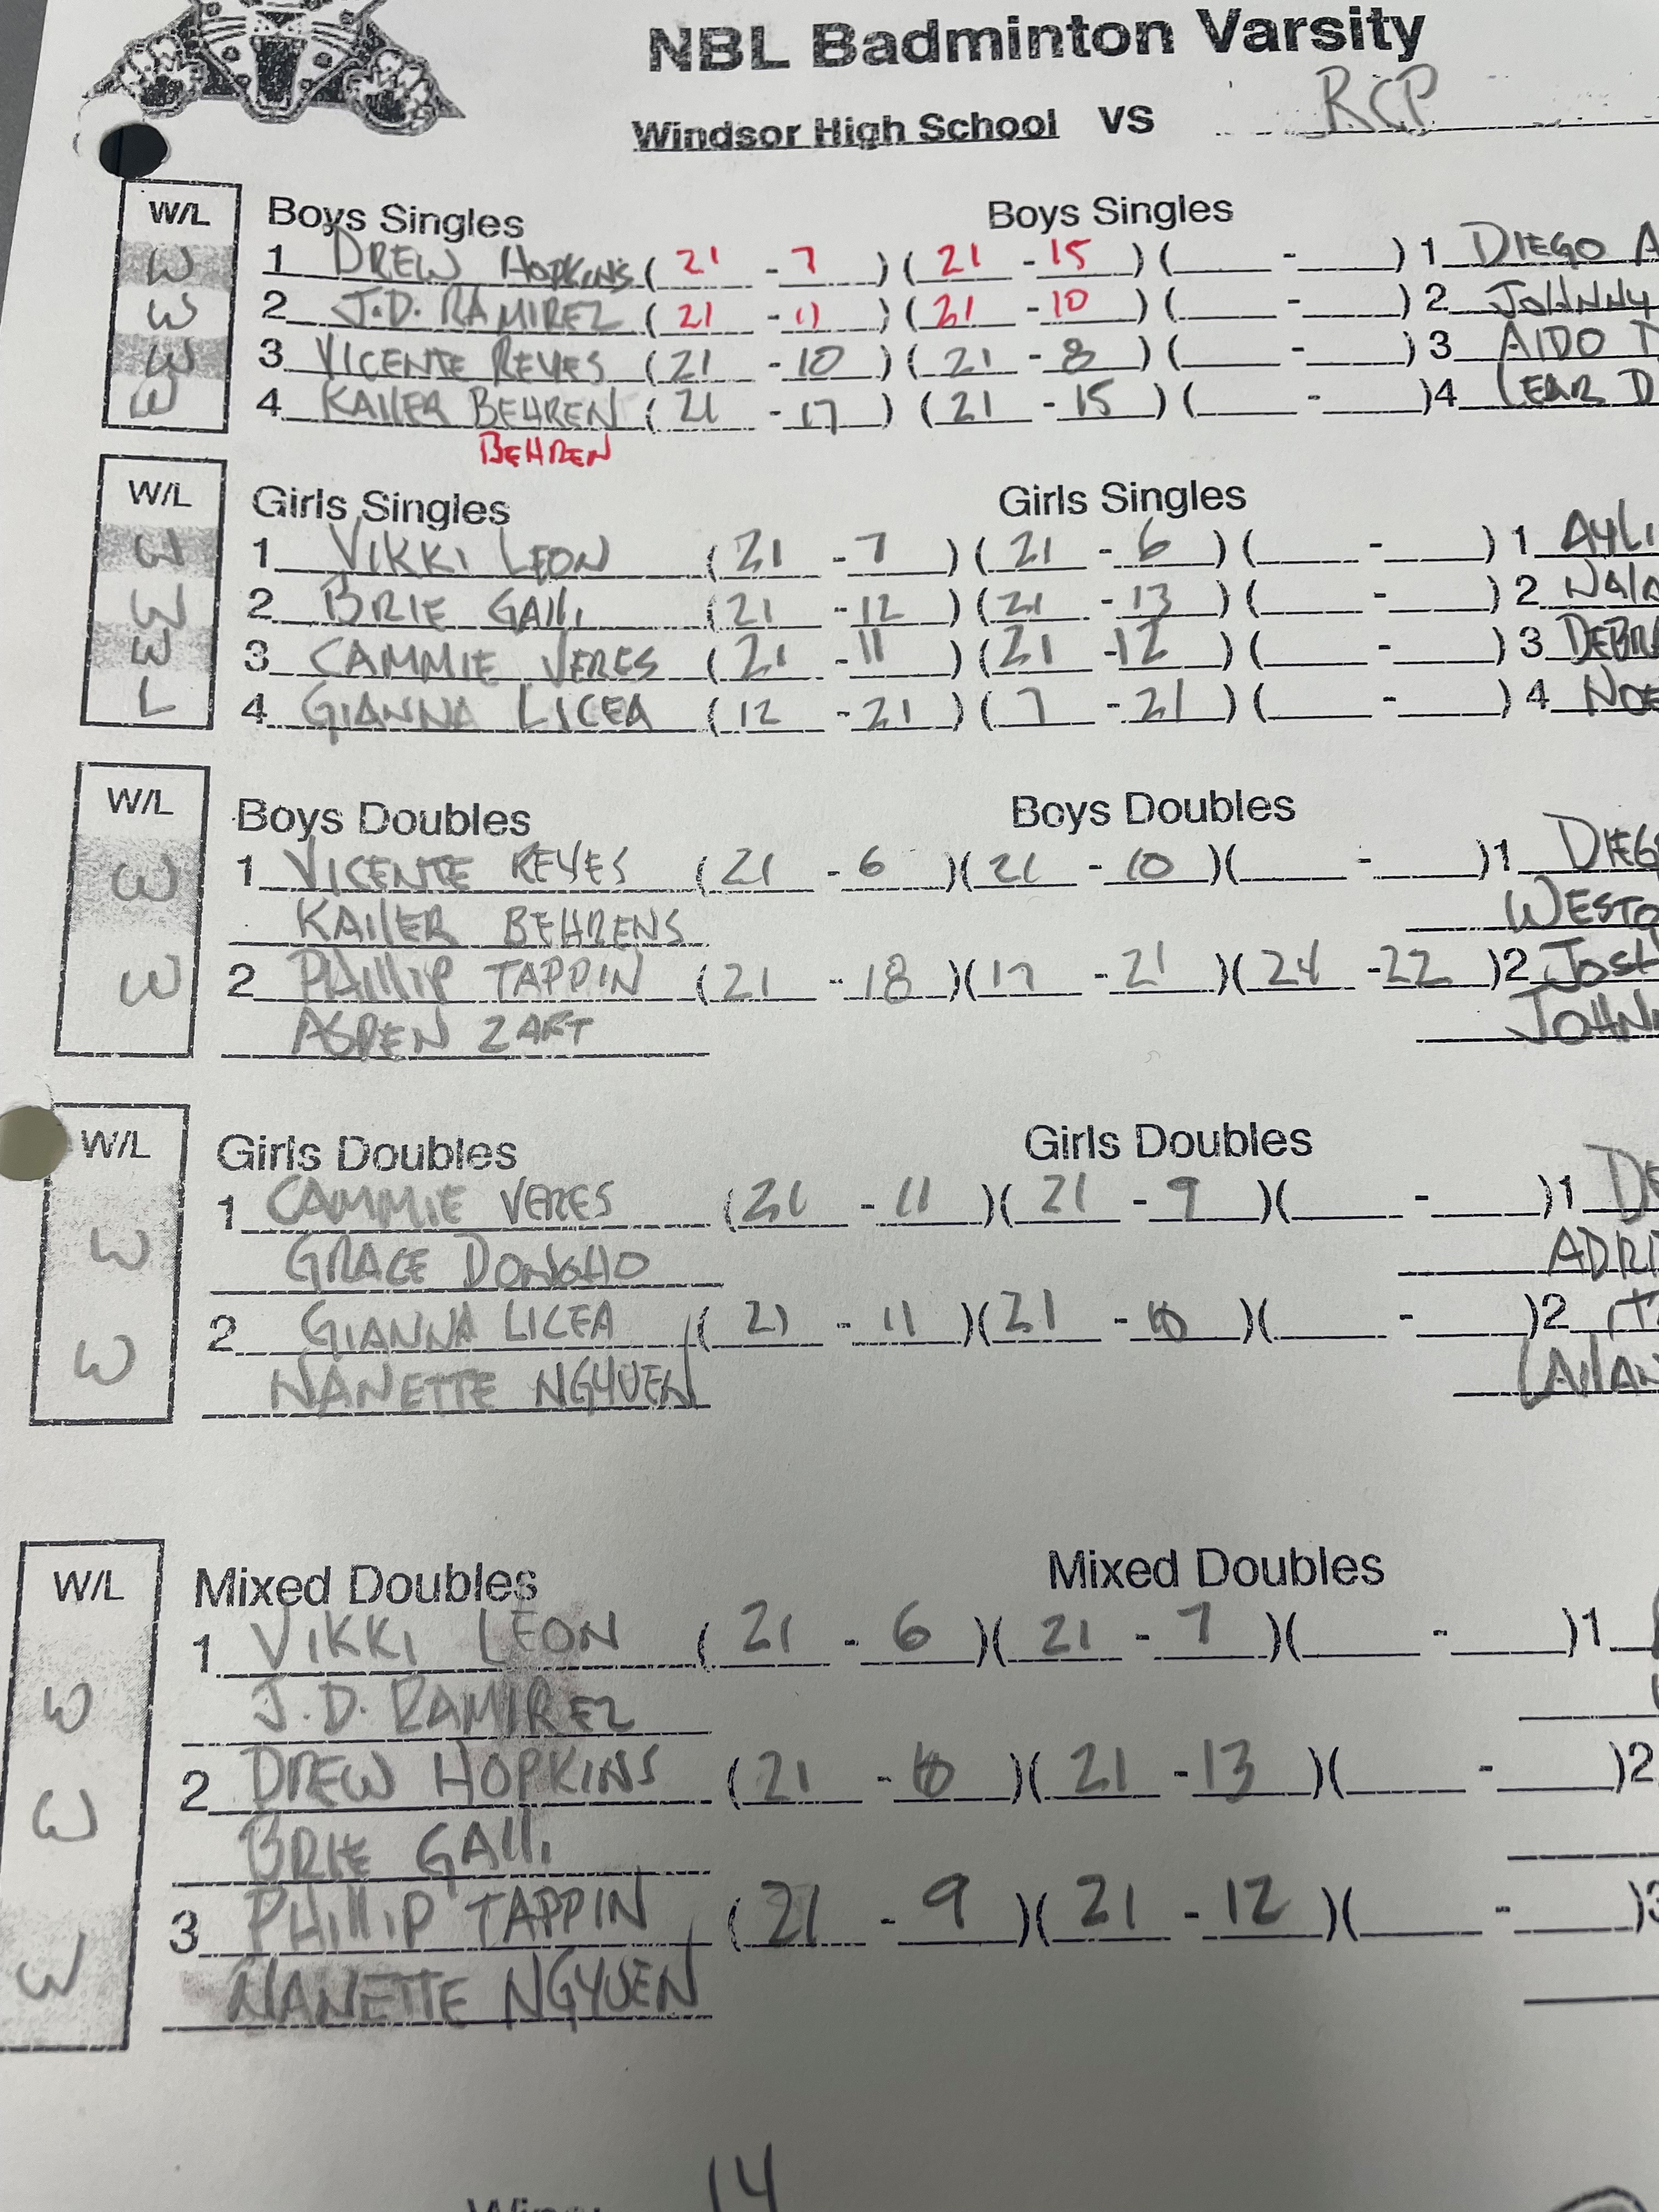 NBL Badminton Varsity
Windsor High School VS RCP
W/L Boys Singles Boys Singles
W 1 DREW HOPKINS ( 21 - 7 ) ( 21 - 15 ) ( - ) 1 DIEGO A
W 2 J.D. RAMIREZ ( 21 - 11 ) ( 21 - 10 ) ( - ) 2 JOHNNY
W 3 VICENTE REYES ( 21 - 10 ) ( 21 - 8 ) ( - ) 3 AIDO
W 4 KAILER BEHREN ( 21 - 17 ) ( 21 - 15 ) ( - ) 4 LEAR D
BEHREN
W/L Girls Singles Girls Singles
W 1 VIKKI LEON ( 21 - 7 ) ( 21 - 6 ) ( - ) 1 AYLI
W 2 BRIE GALLI ( 21 - 12 ) ( 21 - 13 ) ( - ) 2 NALA
W 3 CAMMIE VERES ( 21 - 11 ) ( 21 - 12 ) ( - ) 3 DEBRA
L 4 GIANNA LICEA ( 12 - 21 ) ( 7 - 21 ) ( - ) 4 NOE
W/L Boys Doubles Boys Doubles
W 1 VICENTE REYES ( 21 - 6 ) ( 21 - 10 ) ( - ) 1 DIEG
KAILER BEHRENS WESTO
W 2 PHILLIP TAPPIN ( 21 - 18 ) ( 17 - 21 ) ( 24 - 22 ) 2 JOSH
ASPEN ZART JOHN
W/L Girls Doubles Girls Doubles
W 1 CAMMIE VERES ( 21 - 11 ) ( 21 - 9 ) ( - ) 1 DE
GRACE DONGHO ADRI
W 2 GIANNA LICEA ( 21 - 11 ) ( 21 - 10 ) ( - ) 2
NANETTE NGYUEN LAILAN
W/L Mixed Doubles Mixed Doubles
W 1 VIKKI LEON ( 21 - 6 ) ( 21 - 7 ) ( - ) 1
J.D. RAMIREZ
W 2 DREW HOPKINS ( 21 - 10 ) ( 21 - 13 ) ( - ) 2
BRIE GALLI
W 3 PHILLIP TAPPIN ( 21 - 9 ) ( 21 - 12 ) ( - ) 3
NANETTE NGYUEN
Wins: 14